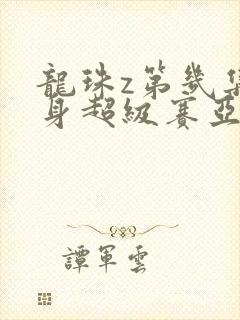 龍珠z第幾集
身超級賽亞
譚軍雲